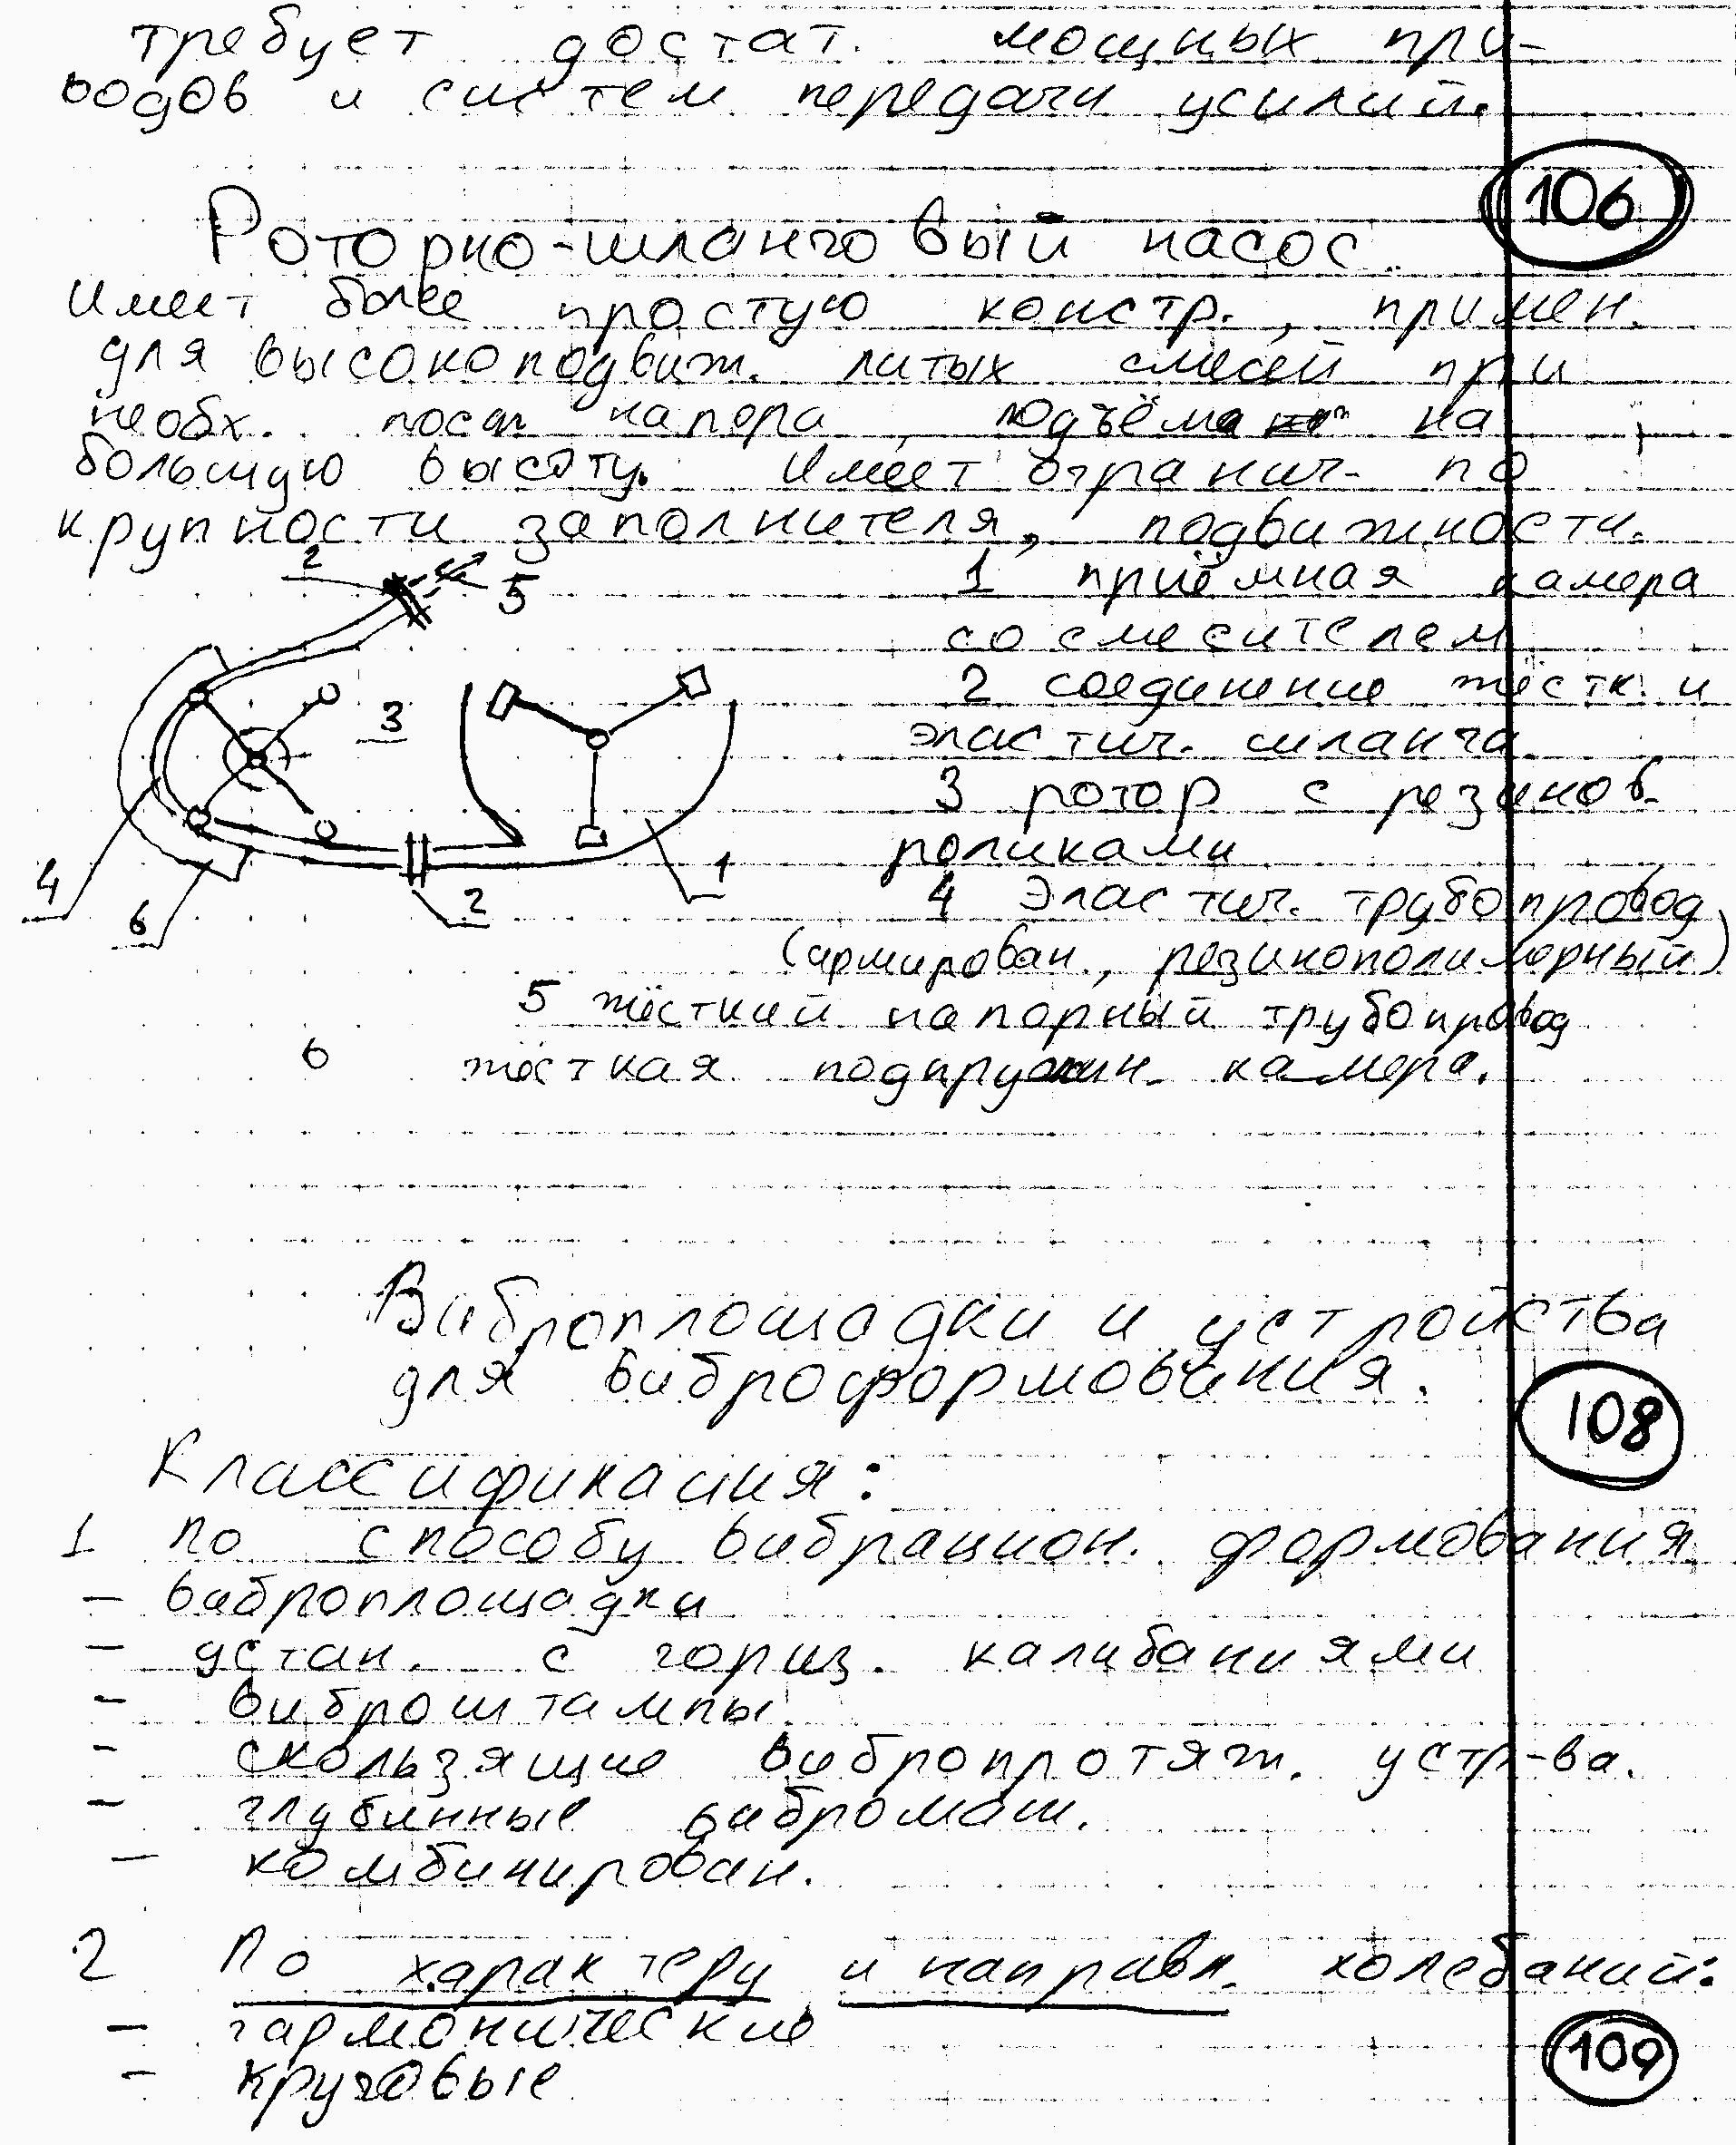 требует достат. мощных при-
водов и систем передачи усилий.
106
Роторно-шланговый насос.
Имеет более простую констр., примен.
для высокоподвиж. литых смесей при
необх. пост напора, подъёма на
большую высоту. Имеет огранич. по
крупности заполнителя, подвижности.
2
5
3
4
6
2
1
1 приёмная камера
со смесителем
2 соединение жёстк. и
эластич. шланга
3 ротор с резинов.
роликами
4 Эластич. трубопровод
(армирован., резинополимерный)
5 жёсткий напорный трубопровод
6 жёсткая камера.
Виброплощадки и устройства
для виброформования.
108
Классификация:
1 По способу вибрацион. формования
– виброплощадки
– устан. с гориз. калибаниями
– виброштампы
– скользящие вибропротяж. устр-ва.
– глубинные вибромаш.
– комбинирован.
2 По характеру и направл. колебаний:
– гармонические
109
– круговые